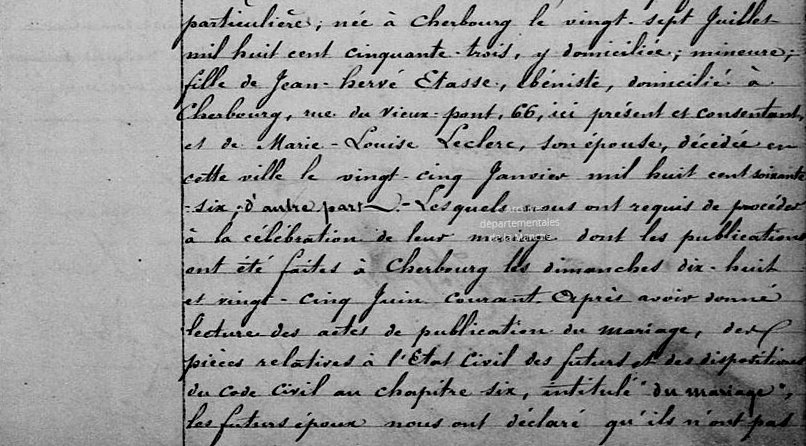 particulière; née à Cherbourg le vingt-sept Juillet
mil huit cent cinquante-trois, y domiciliée; mineure;
fille de Jean-hervé Etasse, ébéniste, domicilié à
Cherbourg, rue du vieux-pont, 66, ici présent et consentant,
et de Marie-Louise Leclerc, son épouse, décédée en
cette ville le vingt-cinq Janvier mil huit cent soixante
-six; d'autre part._ Lesquels nous ont requis de procéder
départementales
à la célébration de leur mariage dont les publications
ont été faites à Cherbourg les dimanches dix-huit
et vingt-cinq Juin courant. Après avoir donné
lecture des actes de publication du mariage, des
pièces relatives à l'Etat Civil des futurs et des dispositions
du Code Civil au chapitre six, intitulé "du mariage",
les futurs époux nous ont déclaré qu'ils n'ont pas